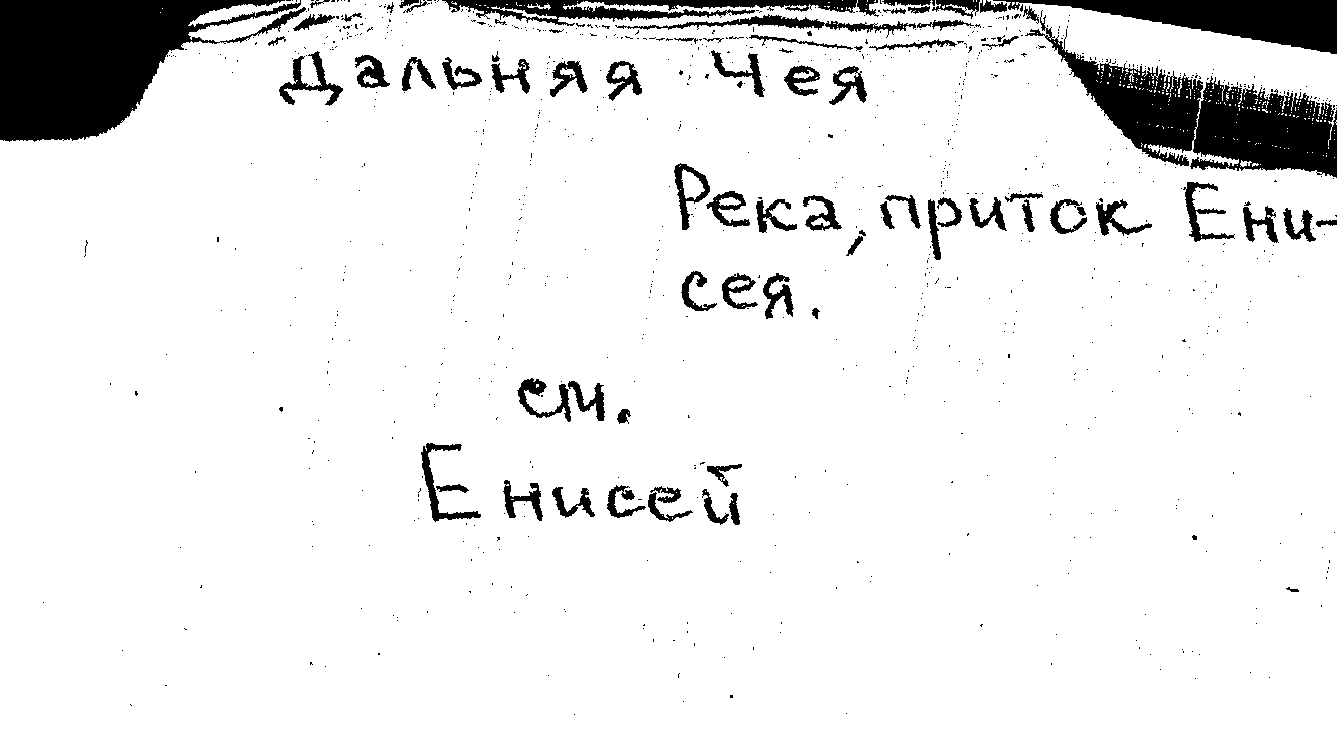 Дальняя Чея
Река, приток Ени-
сея.
см.
Енисей